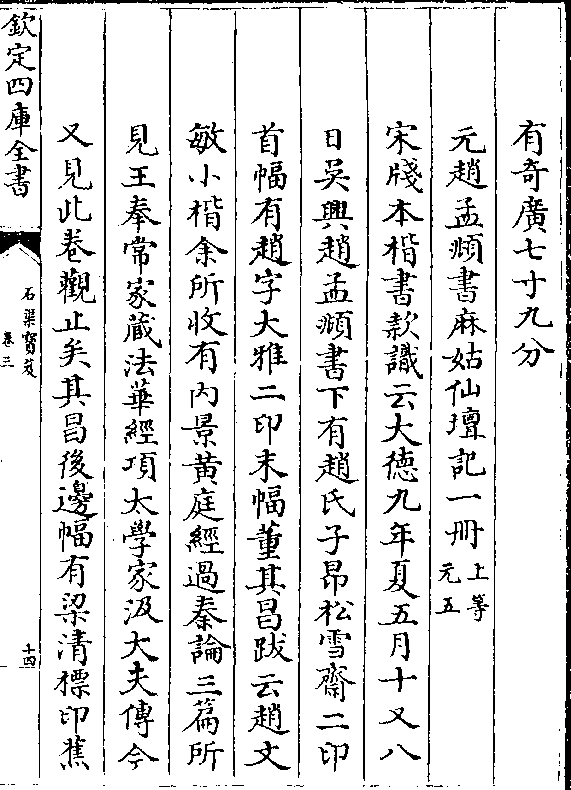 有奇廣七寸九分
元趙孟頫書麻姑仙壇記一冊上等元五
宋牋本楷書款識云大德九年夏五月十又八
日吳興趙孟頫書下有趙氏子昂松雪齋二印
首幅有趙字大雅二印末幅董其昌跋云趙文
敏小楷余所收有内景黄庭經過秦論三篇所
見王奉常家藏法華經項太學家汲大夫傳今
又見此卷觀止矣其昌後邊幅有梁清標印蕉
欽定四庫全書
石渠寳笈
卷三
十四